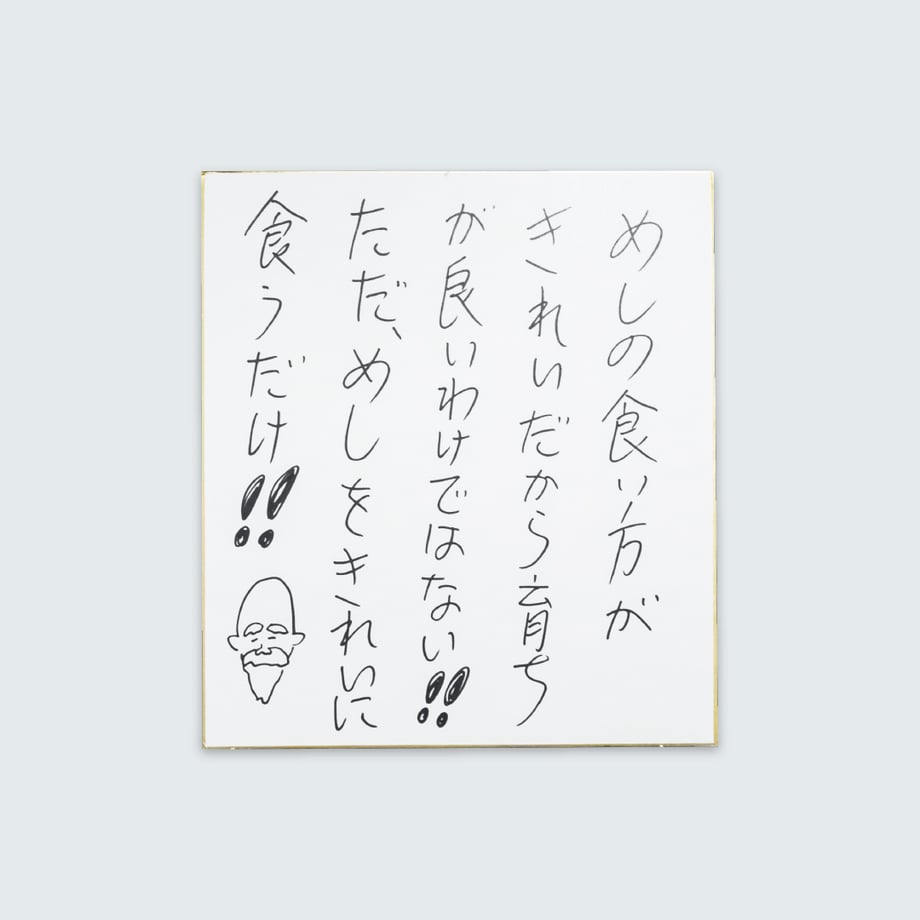 めしの食い方が
きれいだから育ち
が良いわけではない!!
ただ、めしをきれいに
食うだけ!!